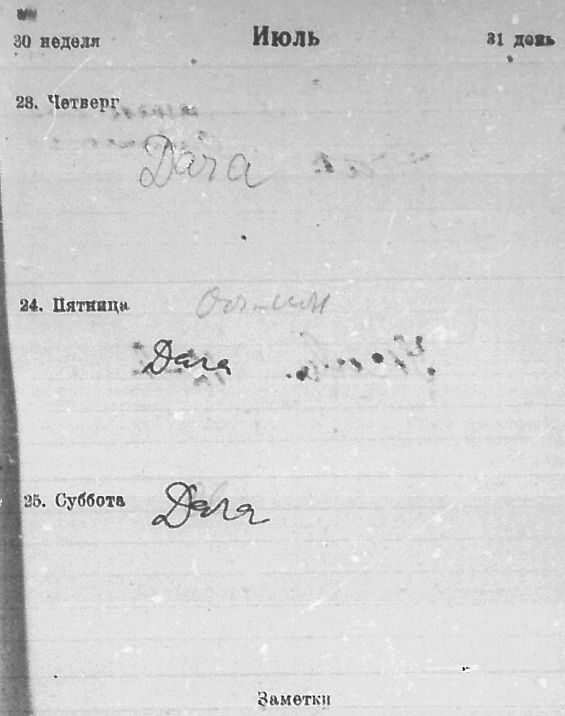 30 неделя Июль 31 день
23. Четверг
Дача
24. Пятница
Дача
25. Суббота
Дача
Заметки